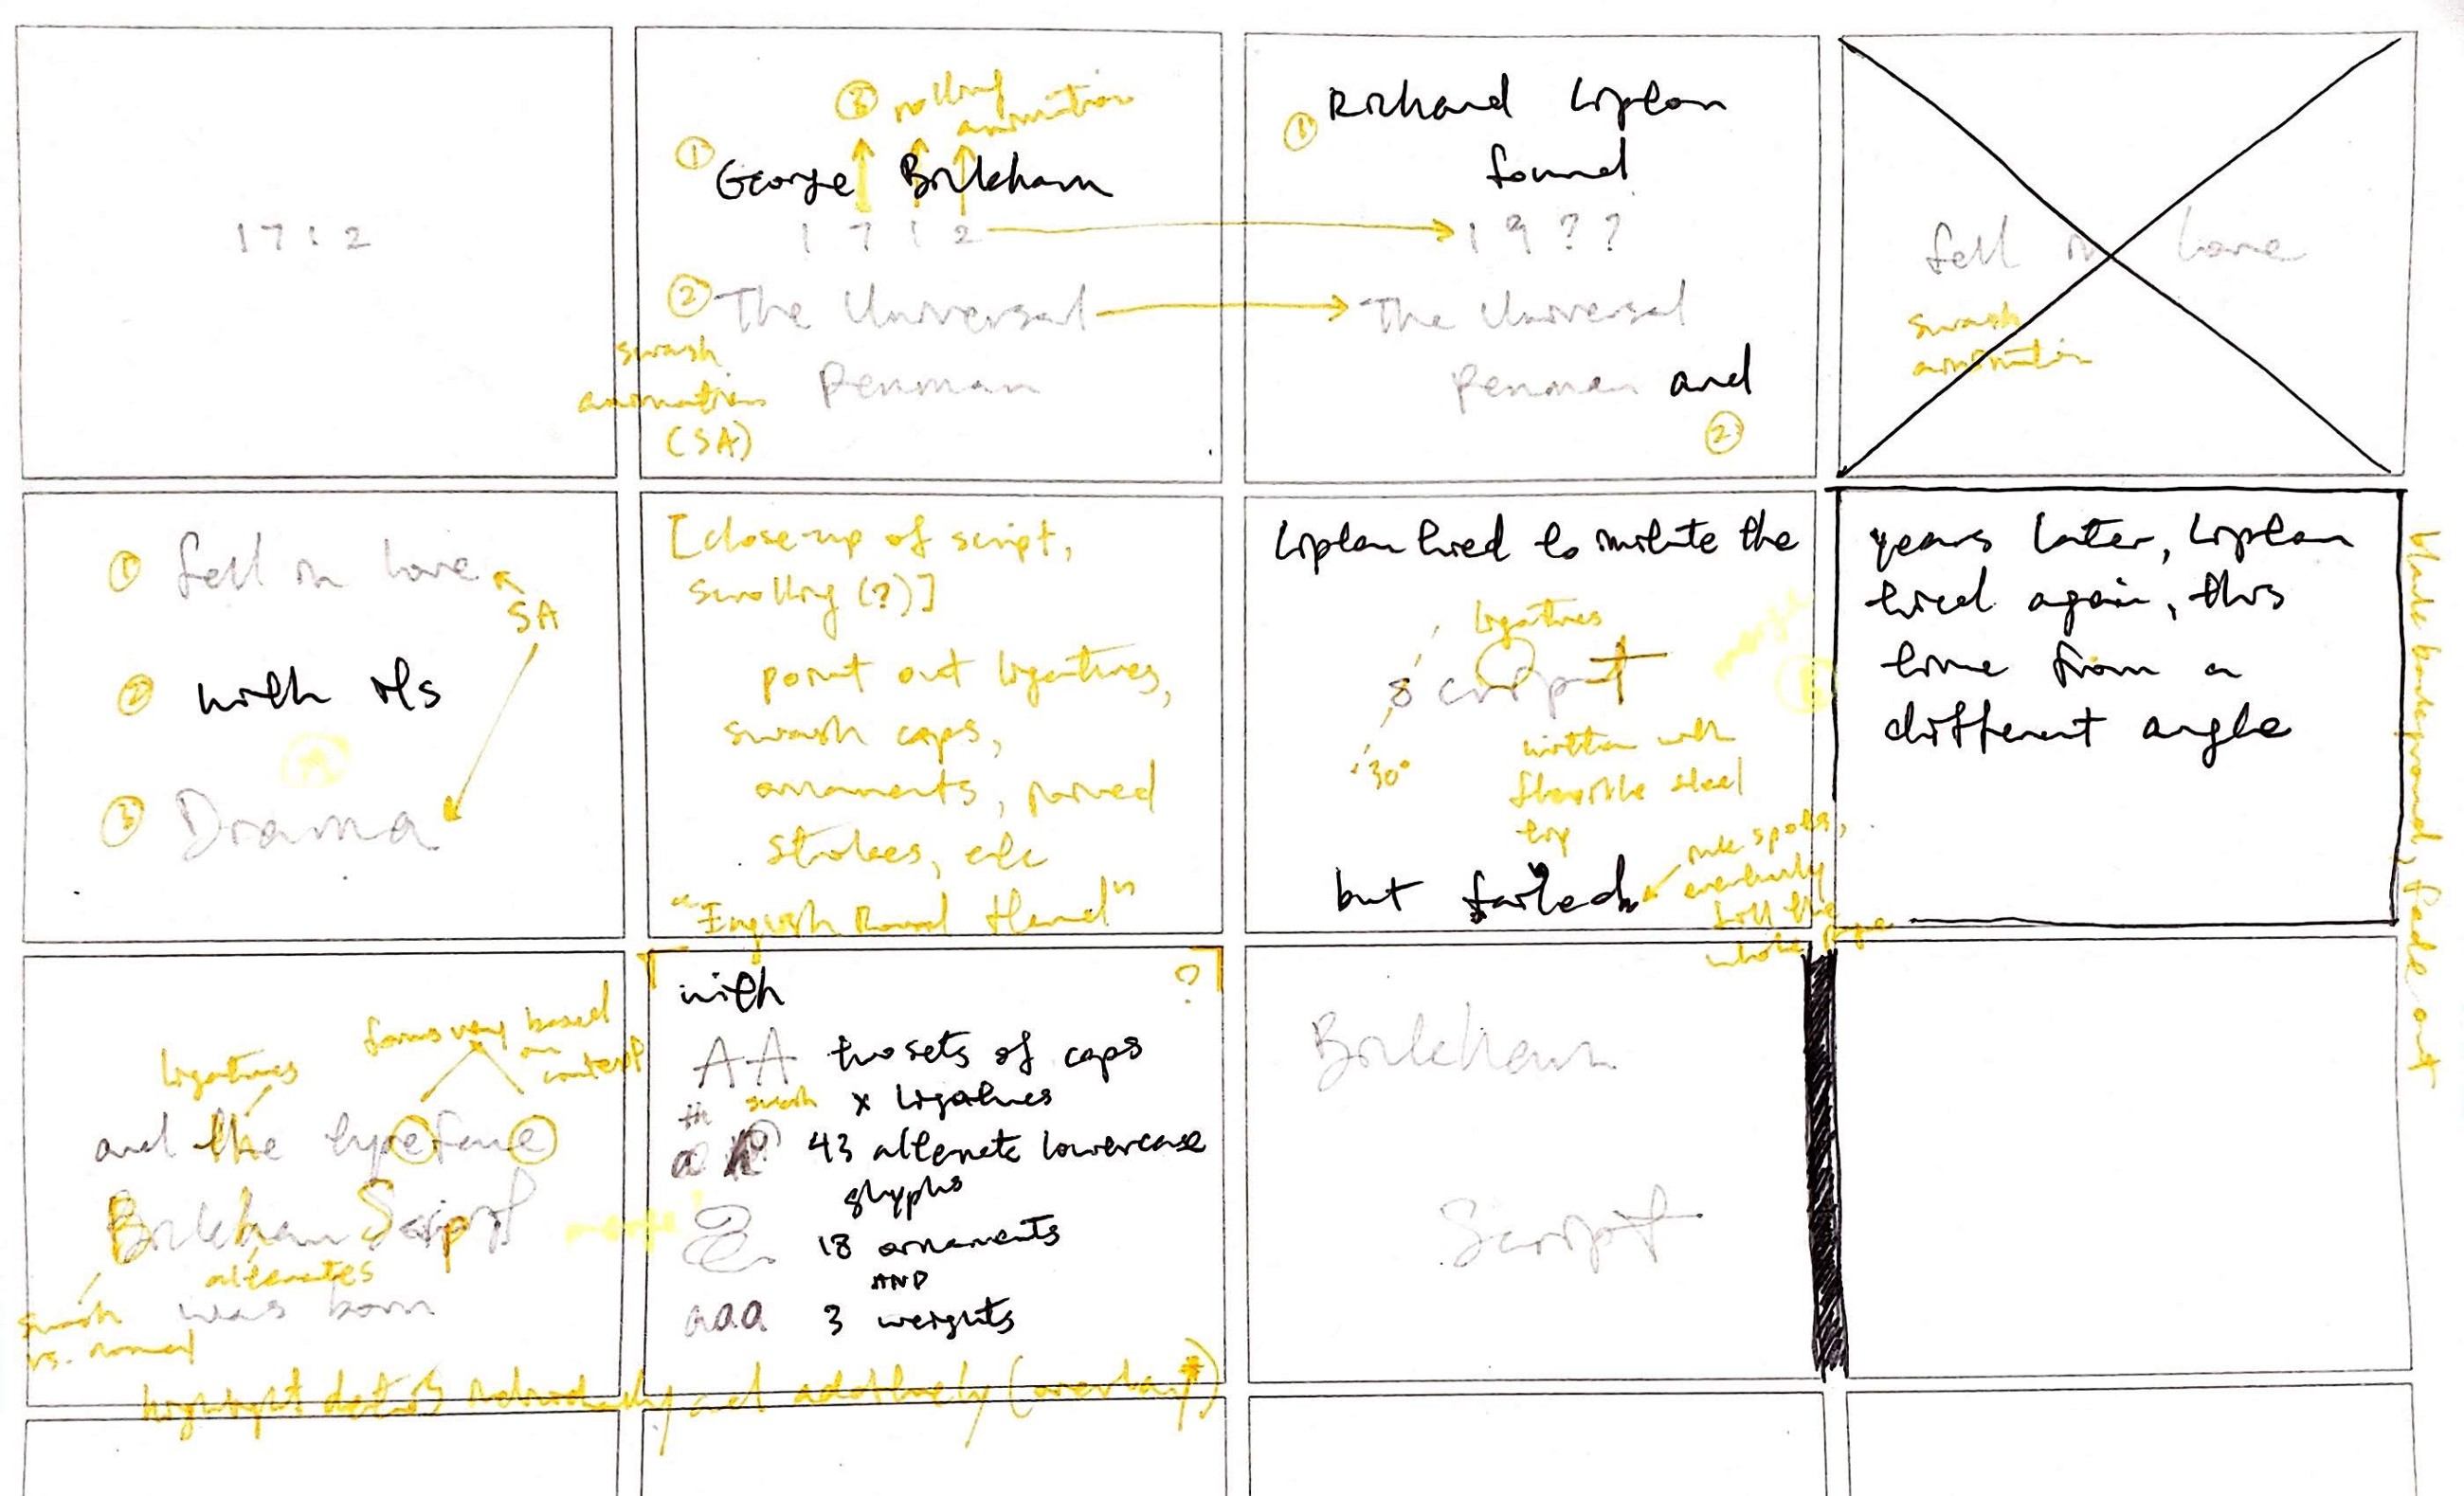 1712
③ rolling
animation
①
George Bickham
1712
② The Universal
Penman
swash
animation
(SA)
① Richard Lipton
found
19??
The Universal
Penman and
②
fell in love
swash
animation
① fell in love
SA
② with its
A
③ Drama
[close-up of script,
scrolling (?)]
point out ligatures,
swash caps,
ornaments, paired
strokes, etc
"English Round Hand"
Lipton tried to imitate the
ligatures
script
30°
written with
flexible steel
tip
but failed
ink spots,
eventually
fill the
whole page
years later, Lipton
tried again, this
time from a
different angle
black background, fade out
ligatures
forms vary based
on
context
and the typeface
Bickham Script
alternates
was born
swash
vs. normal
with
?
AA two sets of caps
th swash x ligatures
a 43 alternate lowercase
glyphs
18 ornaments
AND
aaa 3 weights
highlight details individually and additively (overlay*)
Bickham
Script